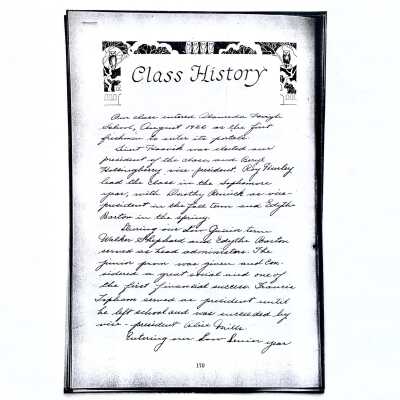 Class History
Our class entered Alameda High
School, August 1926 as the first
freshmen to enter its portals.
was elected our
president of the class and Beryl
Hollingbery vice-president. Roy Hurley
lead the class in the sophomore
year, with Dorothy as vice-
president in the fall term and Edythe
Barton in the spring.
During our Low Junior term
Walker Shephard and Edythe Barton
served as head administrators. The
junior prom was given and con-
sidered a great social and one of
the first financial success. Francis
served as president until
he left school and was succeeded by
vice-president Alice Mills.
Entering our Low Senior year
170